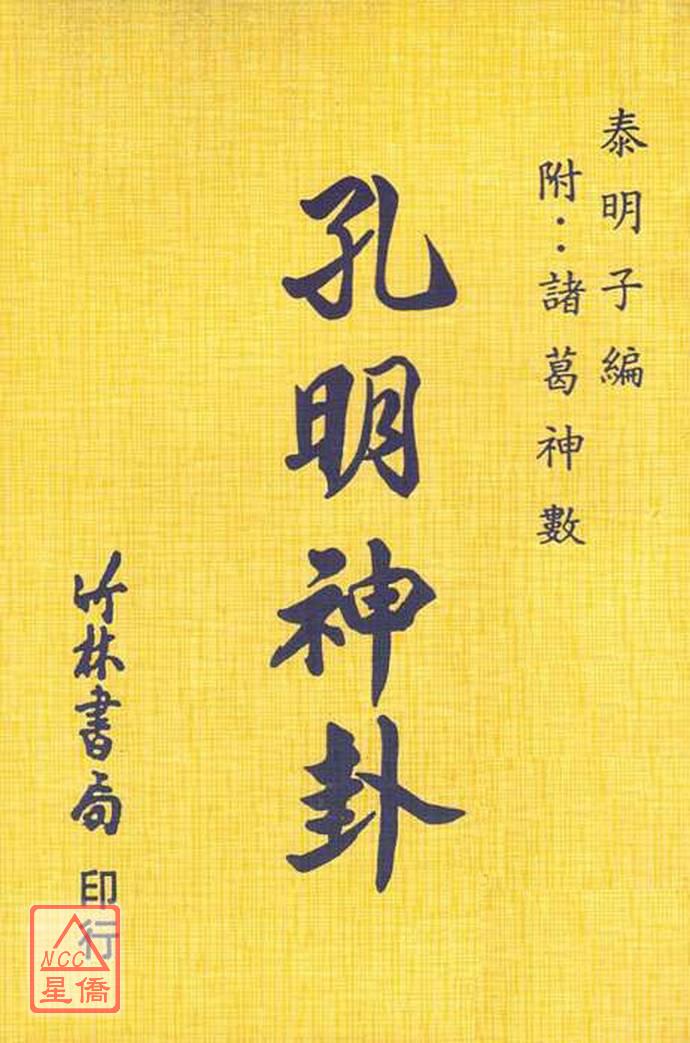 泰明子編
附：諸葛神數
孔明神卦
竹林書局
印行
NCC
星僑